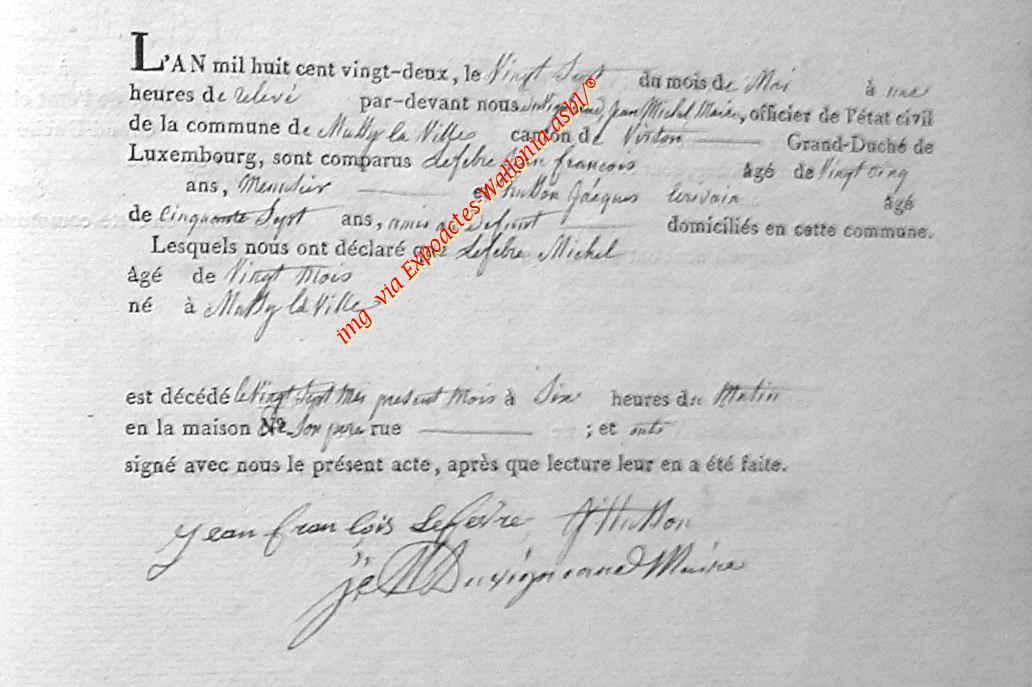 L'AN mil huit cent vingt-deux, le Vingt Sept du mois de Mai à une
heures de relevé par-devant nous Duvigneaud, Jean Michel Maire, officier de l'état civil
de la commune de Mussy la Ville canton de Virton Grand-Duché de
Luxembourg, sont comparus Lefebre Jean francois âgé de Vingt cinq
ans, Meunier et hutton Jacques âgé
de Cinquante Sept ans, amis du Defunt domiciliés en cette commune.
Lesquels nous ont déclaré que Lefebre Michel
âgé de Vingt Mois
né à Mussy la Ville
img via Expoactes-Wallonia asbl/®
est décédé le Vingt Sept Mai present Mois à Six heures du Matin
en la maison de Son pere rue ; et ont
signé avec nous le présent acte, après que lecture leur en a été faite.
Jean françois Lefevre Hutton
Duvigneaud Maire